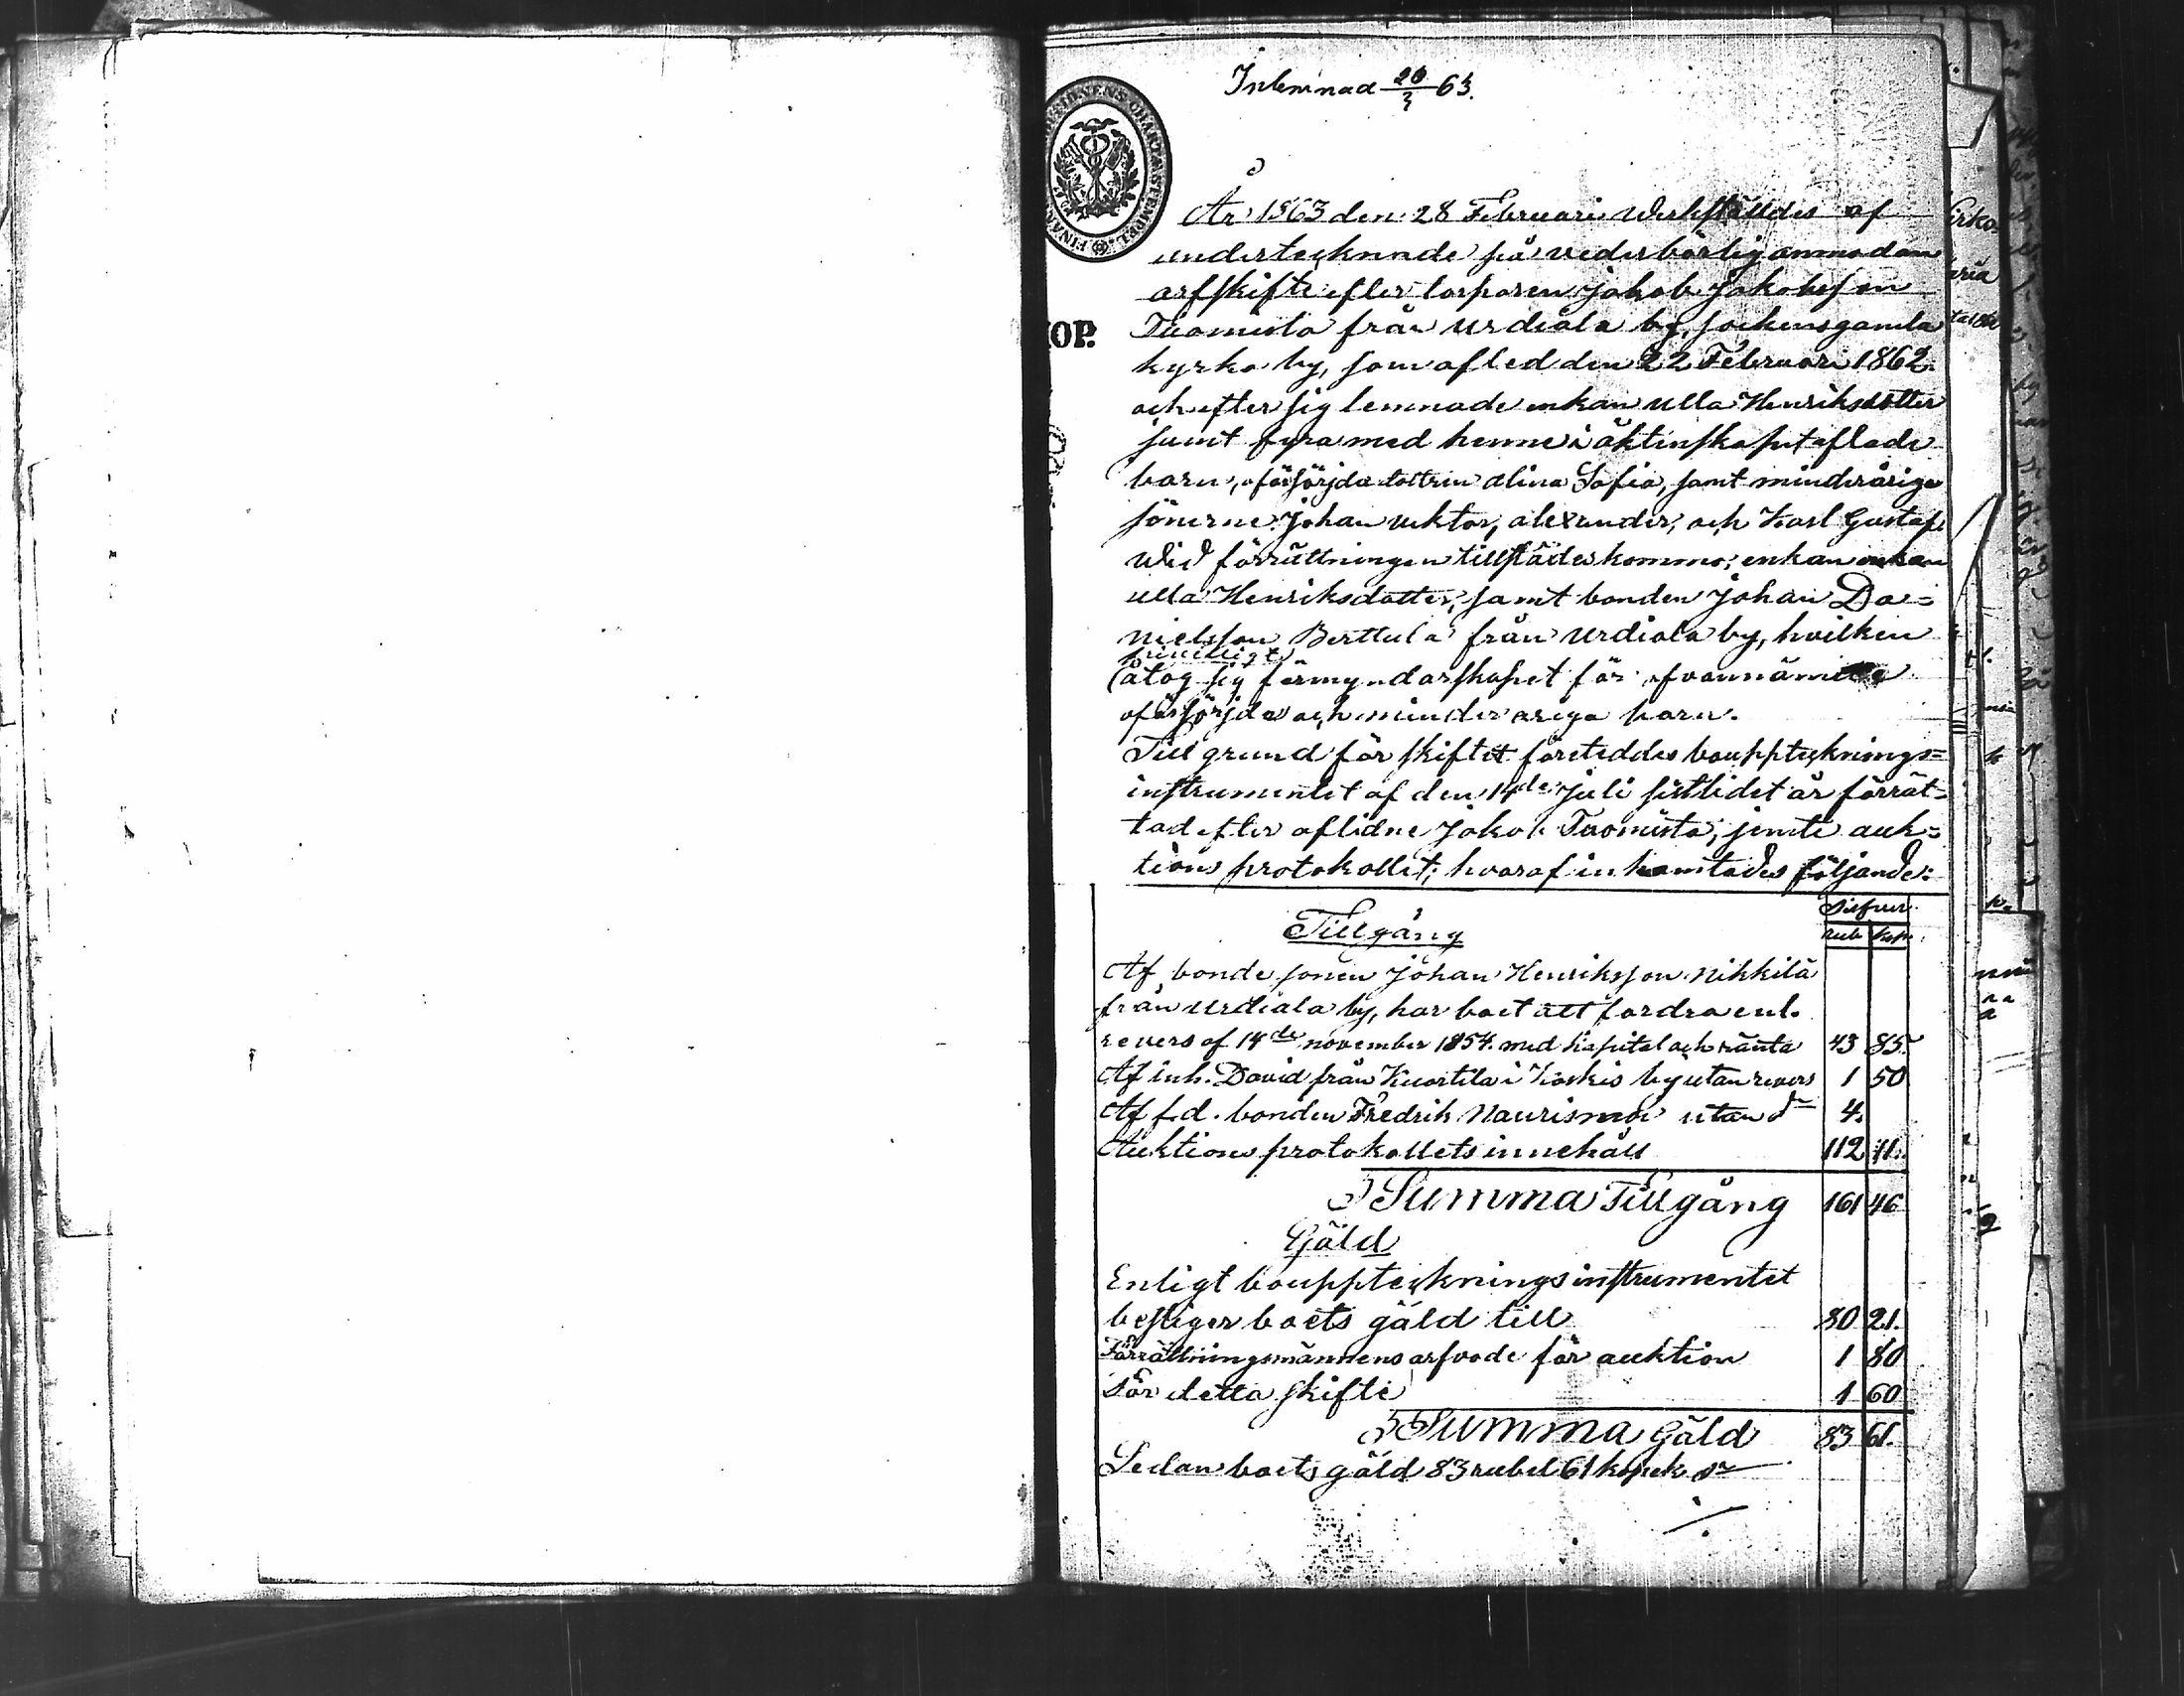 Inlemnad 26/3 63.
År 1863 den 28 Februari Verkställdes af
undertecknade på vederbörlig anmodan
arfskifte efter torparen Jakob Jakobsson
KOP. Tuomisto från Urdiala by, sockens gamla
kyrko by, som afled den 22 Februari 1862
och efter sig lemnade enkan Ulla Henriksdotter
samt fyra med henne i äktenskapet aflade
barn, oförsörjda dottren Alina Sofia, samt minderåriga
sönerne Johan Viktor, Alexander, och Karl Gustaf.
Vid förrättningen tillstädes kommo; enkan enkan
Ulla Henriksdotter, samt bonden Johan Da=
nielsson Berttula från Urdiala by, hvilken
frivilligt
åtog sig förmyndarskapet för ofvannämnde
oförsörjda och minder ariga barn.
Till grund för skiftet företeddes bouppteknings=
instrumentet af den 14de Juli sistledet år förrät=
tad efter aflidne Jakob Tuomisto, jemte auk=
tions protokollet; hvaraf inhämtades följande:
Silfver
Tillgång Rub Kop.
Af bonde sonen Johan Henriksson Nikkilä
från Urdiala by, har boet att fordra enl.
revers af 14de November 1854. med kapital och ränta 43 85.
Af inh. David från Kuortila i Koskis by utan revers 1 50
Af f.d. bonden Fredrik Naurismäe utan do 4.
Auktions protokollets innehåll 112 11.
Summa Tillgång 161 46
Gäld
Enligt bouppteknings instrumentet
bestiger boets gäld till 80 21.
Förrättningsmännens arfvode för auktion 1 80
För detta skifte 1 60
Summa Gäld 83 61.
Sedan boets gäld 83 rubel 61 kopek Sr